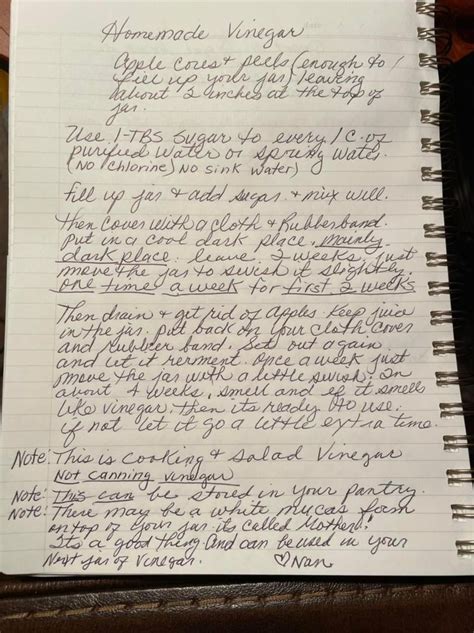 Homemade Vinegar
Apple cores + peels (enough to
fill up your jar) leaving
about 2 inches at the top of
jar.
Use 1-TBS sugar to every 1 C. of
purified water or spring water.
(No chlorine) No sink water)
Fill up jar + add sugar + mix will.
Then cover with a cloth + Rubberband.
Put in a cool dark place, mainly
dark place. leave 2 weeks, just
move the jar to swish it slightly
one time a week for first 2 weeks
Then drain + get rid of apples. Keep juice
in the jar. put back on your cloth cover
and rubber band. Set out again
and let it ferment. Once a week just
move the jar with a little swish. In
about 4 weeks, smell and if it smells
like vinegar, then its ready to use.
if not let it go a little extra time.
Note: This is cooking + salad Vinegar
Not canning vinegar
Note: This can be stored in your pantry.
Note: There may be a white mucas foam
on top of your jar. its called Mother!
Its a good thing and can be used in your
Next jar of Vinegar. ♡Nan